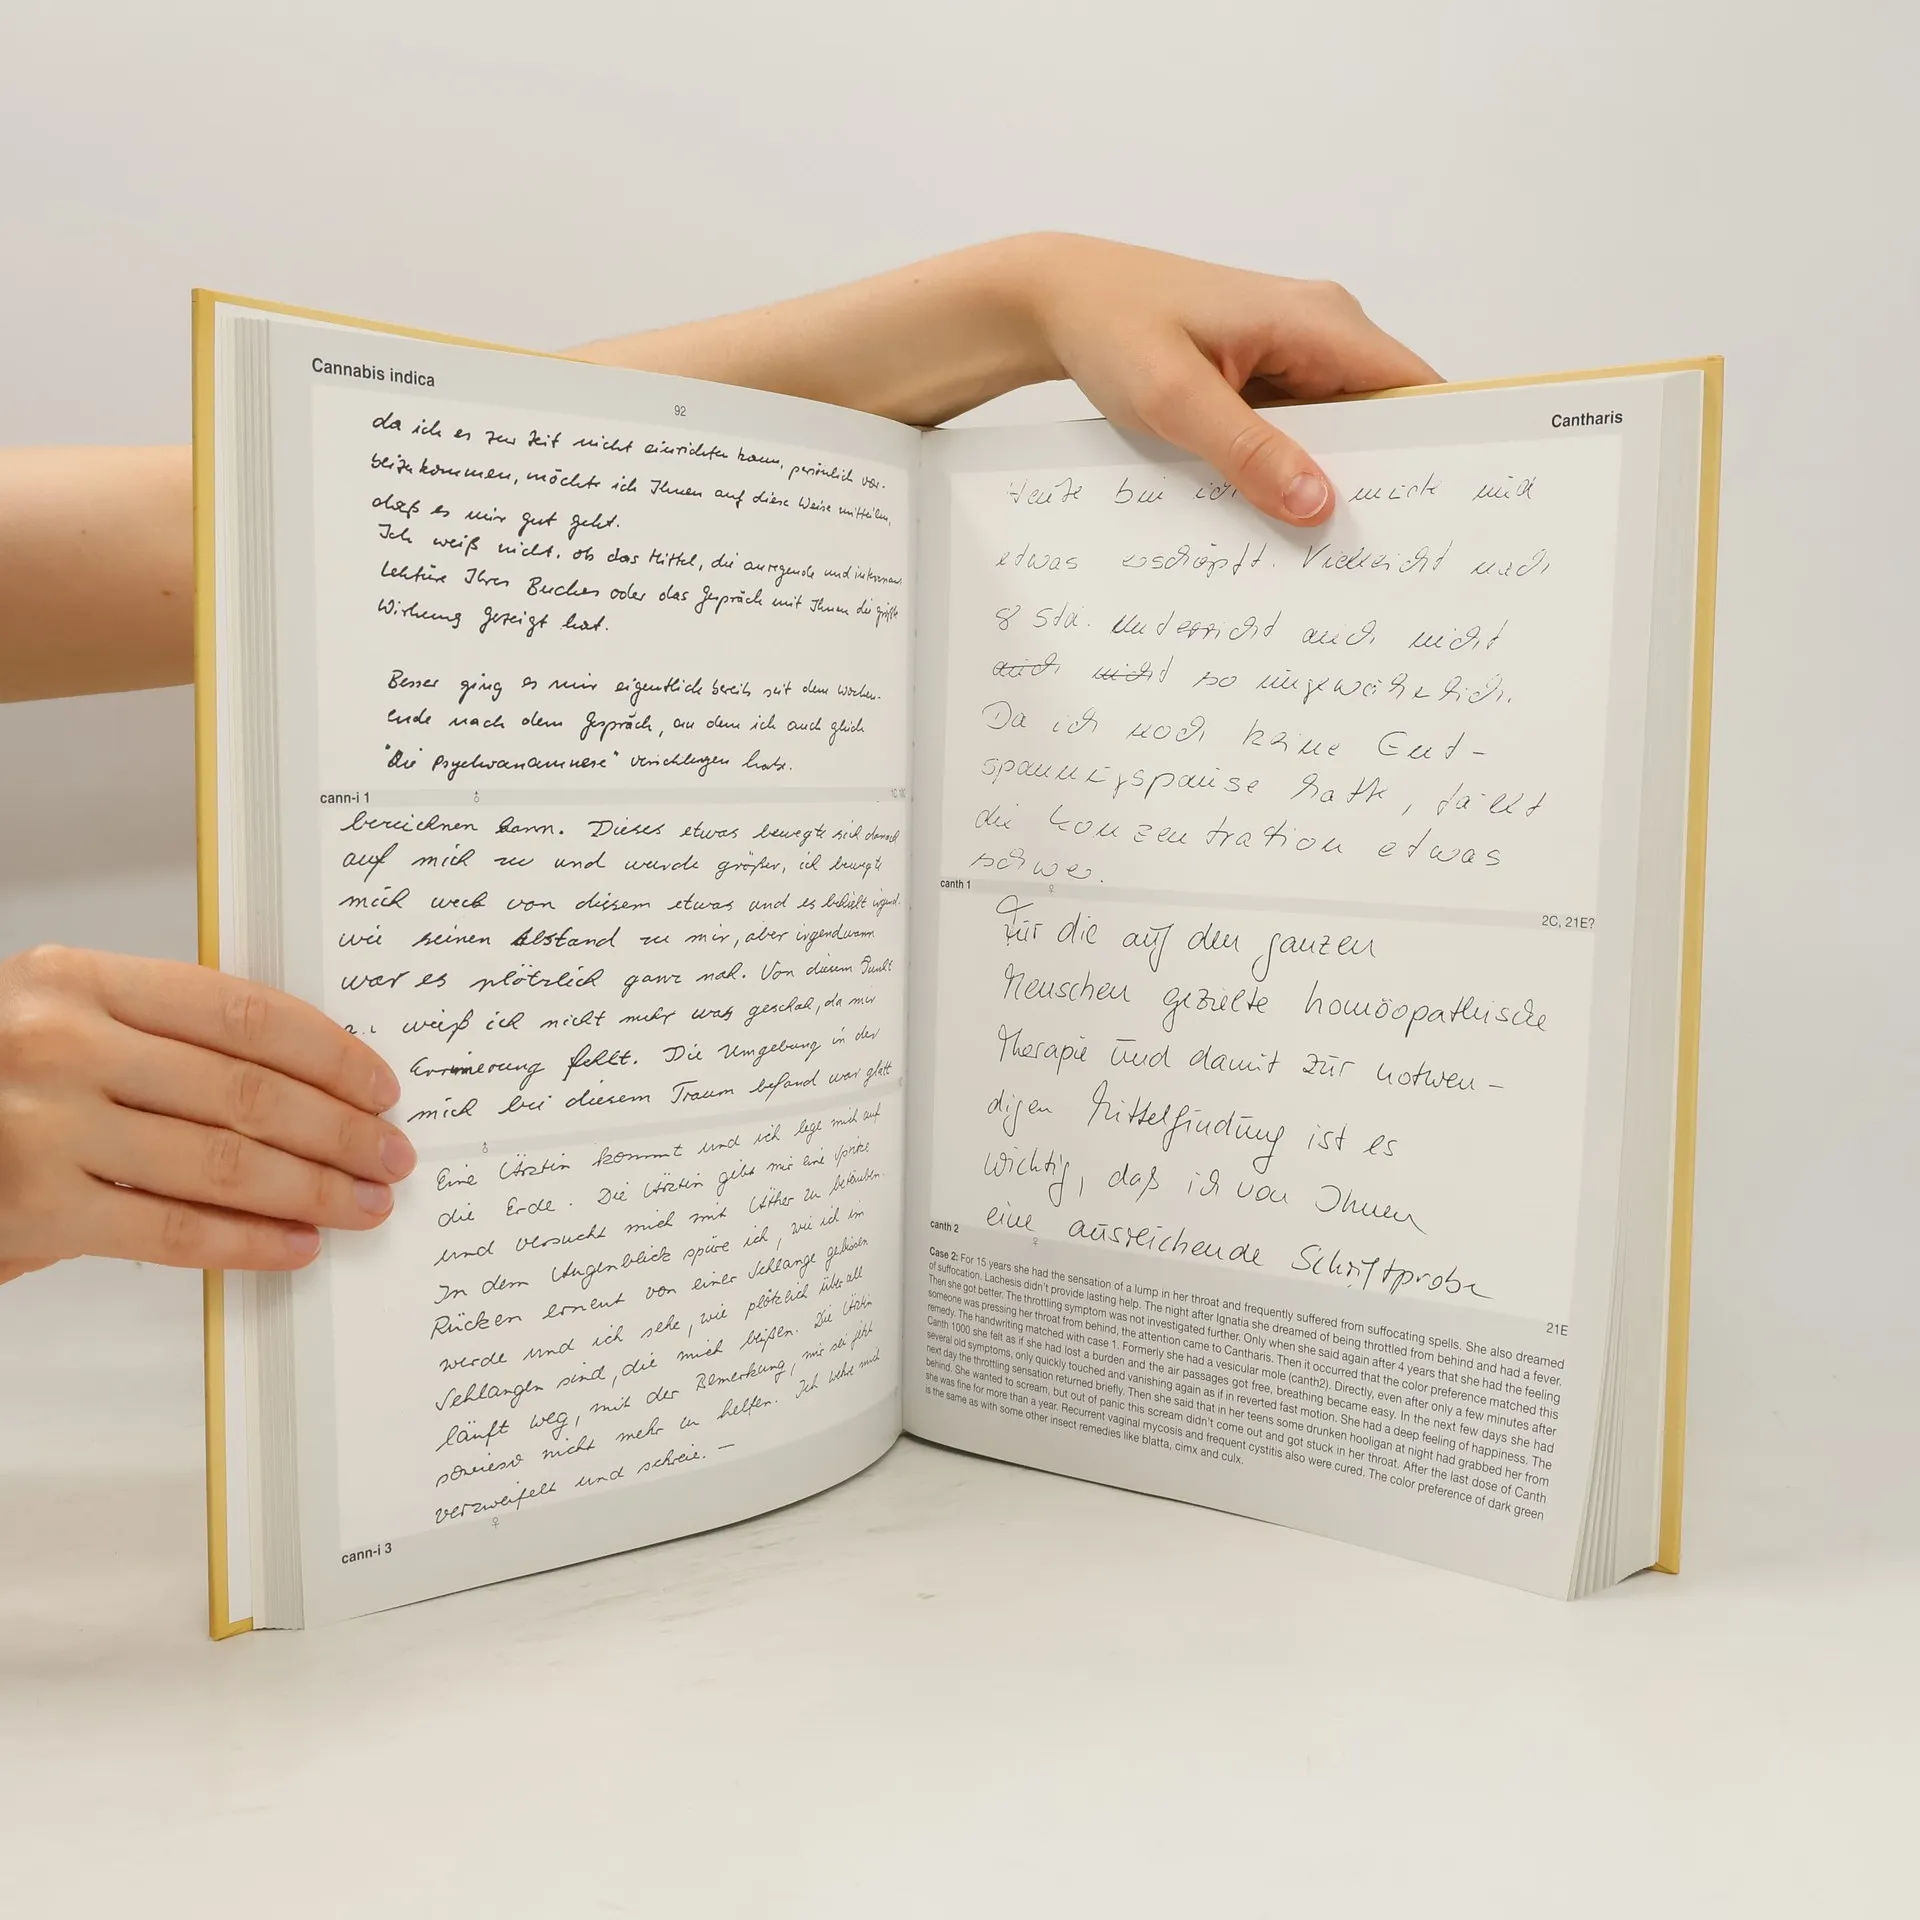 Cannabis indica
92
da ich es zur Zeit nicht einrichten kann, persönlich vor-
beizukommen, möchte ich Ihnen auf diese Weise mitteilen,
daß es mir gut geht.
Ich weiß nicht, ob das Mittel, die anregende und
Lektüre Ihres Buches oder das Gespräch mit Ihnen die größte
Wirkung gezeigt hat.
Besser ging es mir eigentlich bereits seit dem Wochen-
ende nach dem Gespräch, an dem ich auch gleich
"Die Psychoanamnese" verschlungen habe.
cann-i 1
♂
bezeichnen kann. Dieses etwas bewegte sich
auf mich zu und wurde größer, ich bewegte
mich weck von diesem etwas und es behielt irgend-
wie seinen Abstand zu mir, aber irgendwann
war es plötzlich ganz nah. Von diesem Punkt
weiß ich nicht mehr was geschah, da mir
Errinerung fehlt. Die Umgebung in der
mich bei diesem Traum befand war glatt
♂
Eine Ärztin kommt und ich lege mich auf
die Erde. Die Ärztin gibt mir eine Spritze
und versucht mich mit Äther zu betäuben.
In dem Augenblick spüre ich, wie ich im
Rücken erneut von einer Schlange gebissen
werde und ich sehe, wie plötzlich überall
Schlangen sind, die mich beißen. Die Ärztin
läuft weg, mit der Bemerkung, mir sei jetzt
sowieso nicht mehr zu helfen. Ich wehre mich
verzweifelt und schreie. —
♀
cann-i 3
Cantharis
Heute bin ich müde und
etwas erschöpft. Vielleicht nach
8 Std. Unterricht auch nicht
auch nicht so ungewöhnlich.
Da ich noch keine Ent-
spannungspause hatte, fällt
die Konzentration etwas
schwer.
canth 1
♀
2C, 21E?
Für die auf den ganzen
Menschen gezielte homöopathische
Therapie und damit zur notwen-
digen Mittelfindung ist es
wichtig, daß ich von Ihnen
eine ausreichende Schriftprobe
canth 2
♀
21E
Case 2: For 15 years she had the sensation of a lump in her throat and frequently suffered from suffocating spells. She also dreamed
of suffocation. Lachesis didn't provide lasting help. The night after Ignatia she dreamed of being throttled from behind and had a fever.
Then she got better. The throttling symptom was not investigated further. Only when she said again after 4 years that she had the feeling
someone was pressing her throat from behind, the attention came to Cantharis. Then it occurred that the color preference matched this
remedy. The handwriting matched with case 1. Formerly she had a vesicular mole (canth2). Directly, even after only a few minutes after
Canth 1000 she felt as if she had lost a burden and the air passages got free, breathing became easy. In the next few days she had
several old symptoms, only quickly touched and vanishing again as if in reverted fast motion. She had a deep feeling of happiness. The
next day the throttling sensation returned briefly. Then she said that in her teens some drunken hooligan at night had grabbed her from
behind. She wanted to scream, but out of panic this scream didn't come out and got stuck in her throat. After the last dose of Canth
she was fine for more than a year. Recurrent vaginal mycosis and frequent cystitis also were cured. The color preference of dark green
is the same as with some other insect remedies like blatta, cimx and culx.